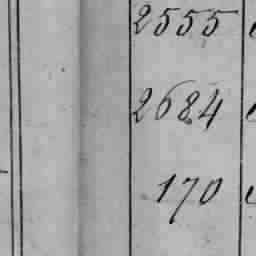 2555
2684
170